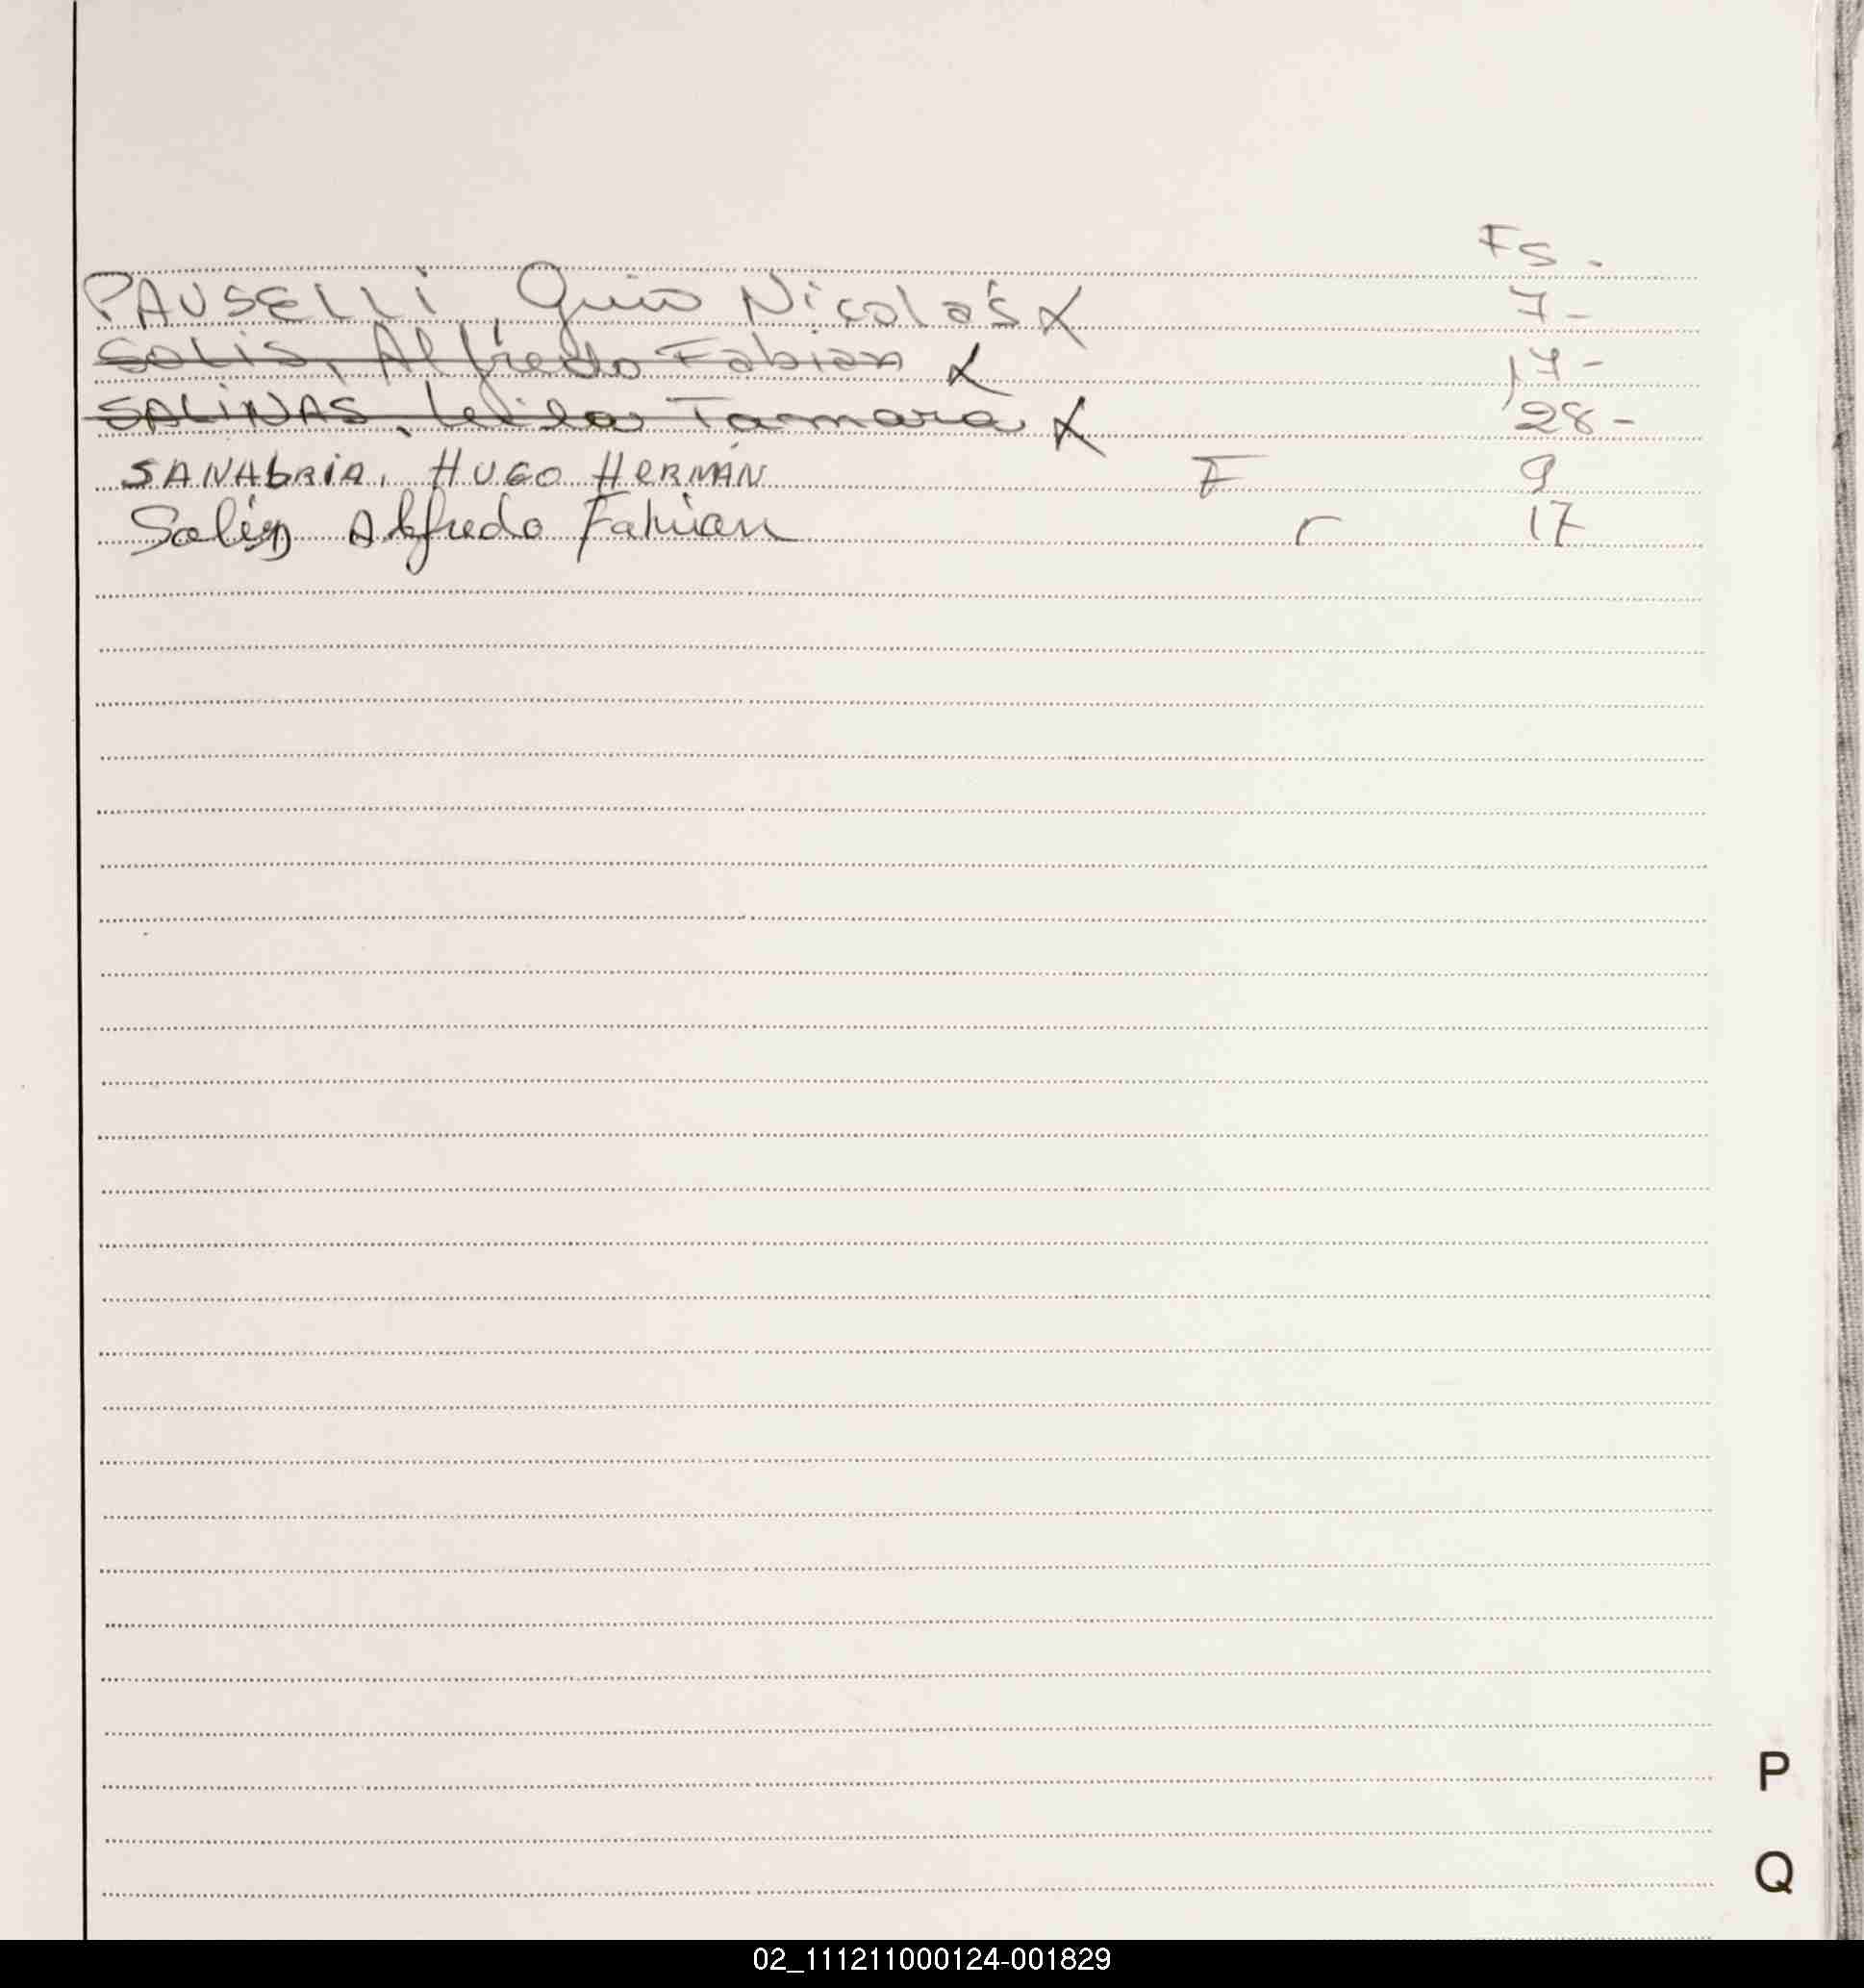 Fs.
PAUSELLI, Guio Nicolás X 7-
SOLIS, Alfredo Fabian X 17-
SALINAS, Leila Tamara X 28-
SANABRIA, HUGO HERMÁN F 9
Solis Alfredo Fabian r 17
P
Q
02_111211000124-001829